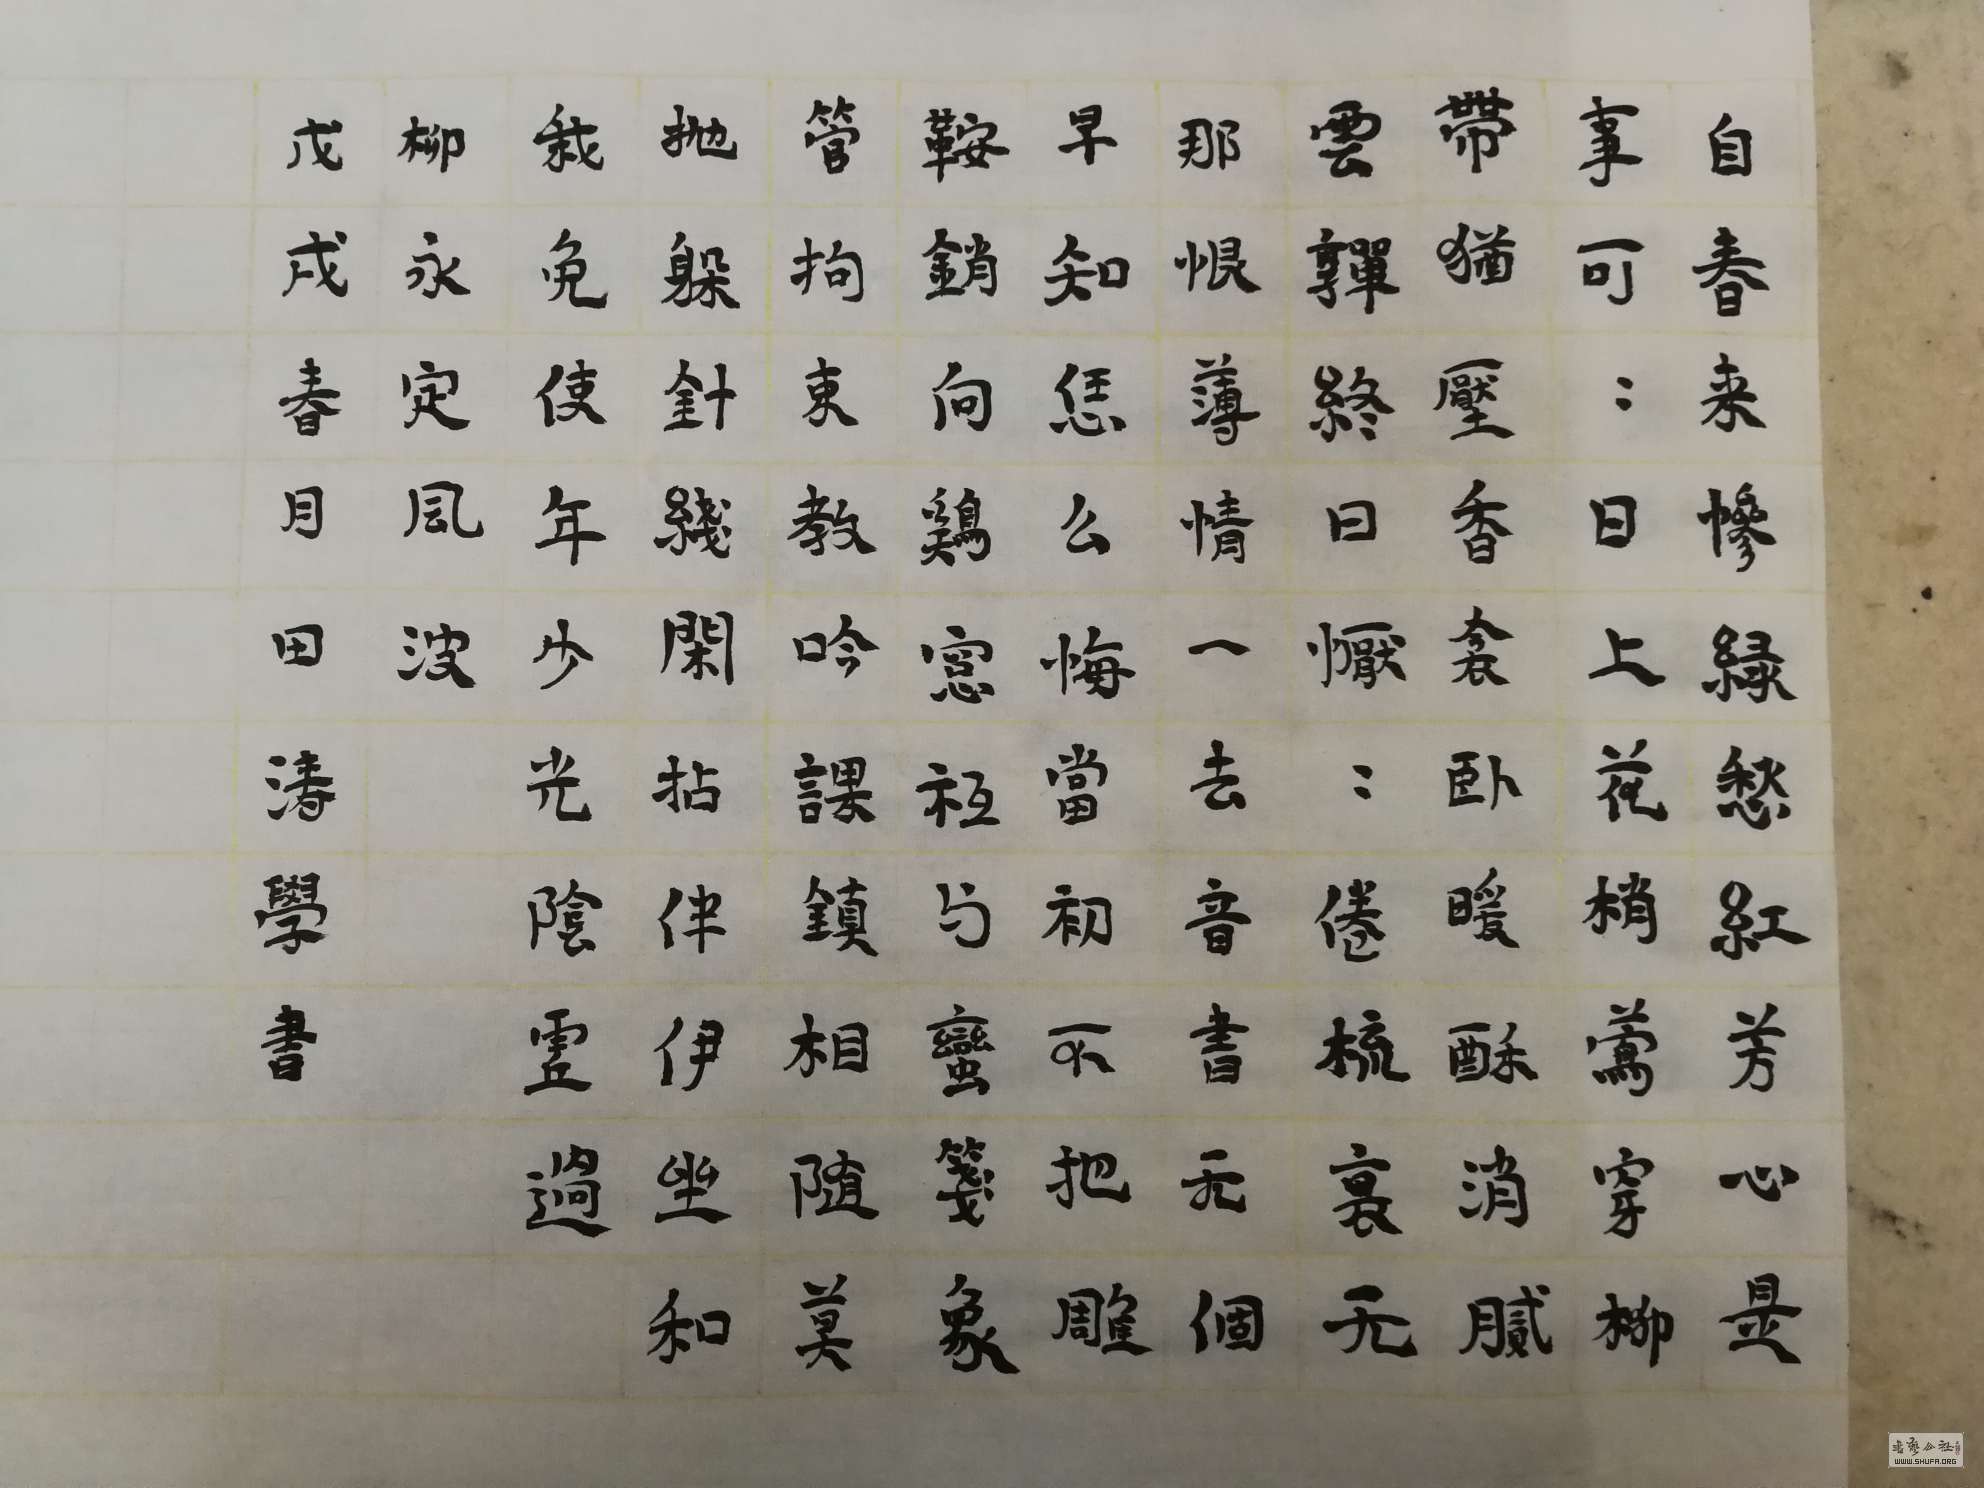 自春来慘緑愁紅芳心是
事可：日上花梢鶯穿柳
帶猶壓香衾卧暖酥消膩
雲嚲終日懨：倦梳裏无
那恨薄情一去音書无個
早知恁么悔當初不把雕
鞍鎖向鷄窓衹与蠻箋象
管拘束教吟課鎮相随莫
抛躲針綫閑拈伴伊坐和
我免使年少光陰虛過
柳永定風波
戊戌春月田涛學書
書藝公社
WWW.SHUFA.ORG